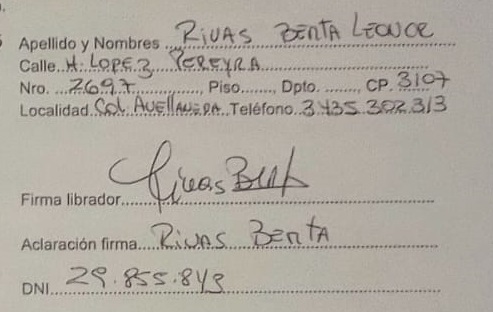 Apellido y Nombres RIVAS BENTA LEONOR
Calle H. LOPEZ PEREYRA
Nro. 2697, Piso, Dpto., CP. 3107
Localidad Col. AVELLANEDA Teléfono 3435 302 313
Firma librador Rivas Benta
Aclaración firma RIVAS BENTA
DNI 29.855.849